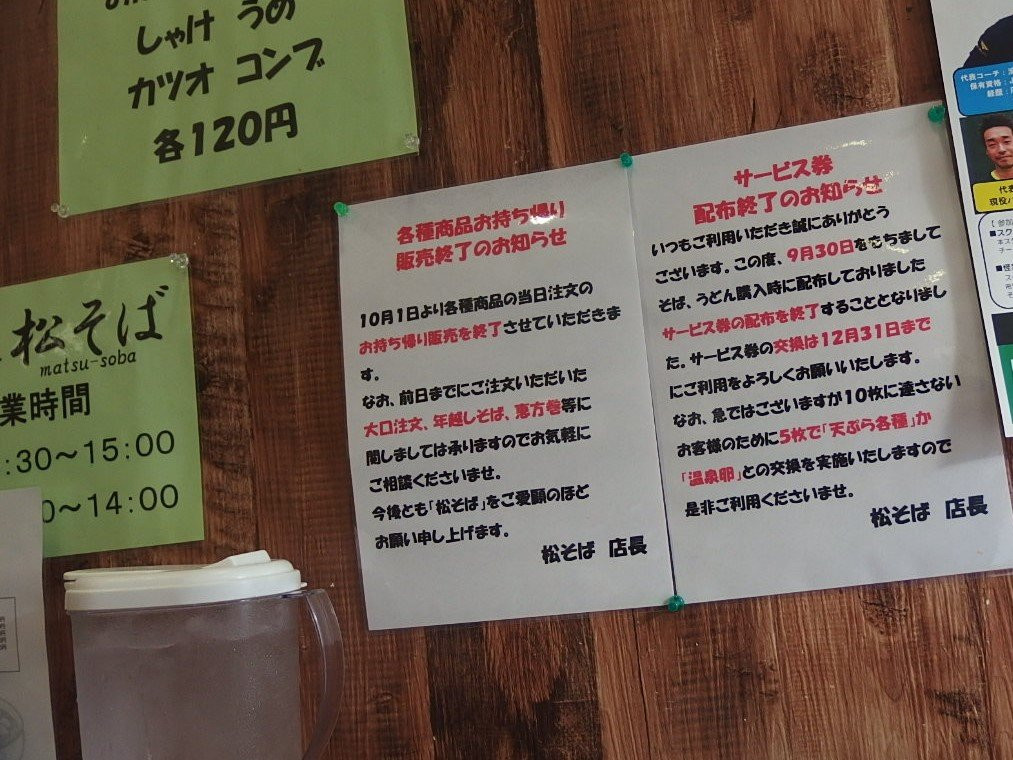 しゃけ うめ
カツオ コンブ
各120円
松そば
matsu-soba
業時間
:30～15:00
0～14:00
各種商品お持ち帰り
販売終了のお知らせ
10月1日より各種商品の当日注文の
お持ち帰り販売を終了させていただきま
す。
なお、前日までにご注文いただいた
大口注文、年越しそば、恵方巻等に
関しましては承りますのでお気軽に
ご相談くださいませ。
今後とも「松そば」をご愛顧のほど
お願い申し上げます。
松そば 店長
サービス券
配布終了のお知らせ
いつもご利用いただき誠にありがとう
ございます。この度、9月30日をもちまして
そば、うどん購入時に配布しておりました
サービス券の配布を終了することとなりまし
た。サービス券の交換は12月31日まで
にご利用をよろしくお願いいたします。
なお、急ではございますが10枚に達さない
お客様のために5枚で「天ぷら各種」か
「温泉卵」との交換を実施いたしますので
是非ご利用くださいませ。
松そば 店長
代表コーチ：
保有資格：
経歴：
代表
現役